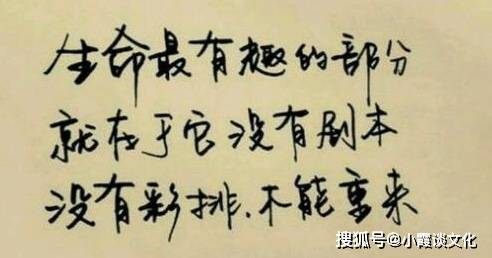 生命最有趣的部分
就在于它没有剧本
没有彩排.不能重来
搜狐号@小霞谈文化